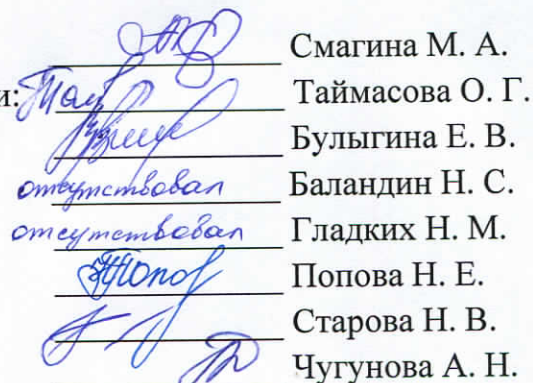 Смагина М. А.
и: Таймасова О. Г.
Булыгина Е. В.
отсутствовал Баландин Н. С.
отсутствовал Гладких Н. М.
Попова Н. Е.
Старова Н. В.
Чугунова А. Н.